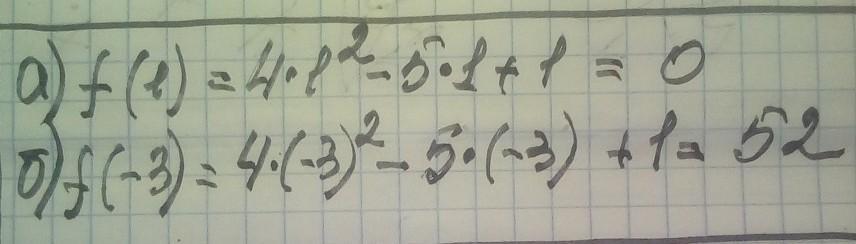 а) f(1) = 4·1² - 5·1 + 1 = 0
б) f(-3) = 4·(-3)² - 5·(-3) + 1 = 52